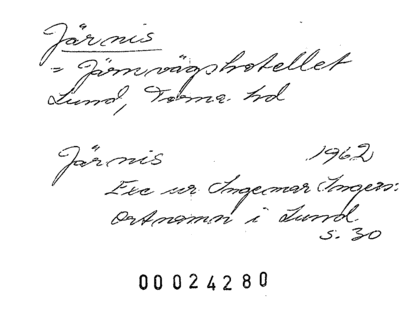 Järnis
= Järnvägshotellet
Lund, Torna hd
Järnis 1962
Exc ur Ingemar Ingers:
Ortnamn i Lund
s. 30
00024280